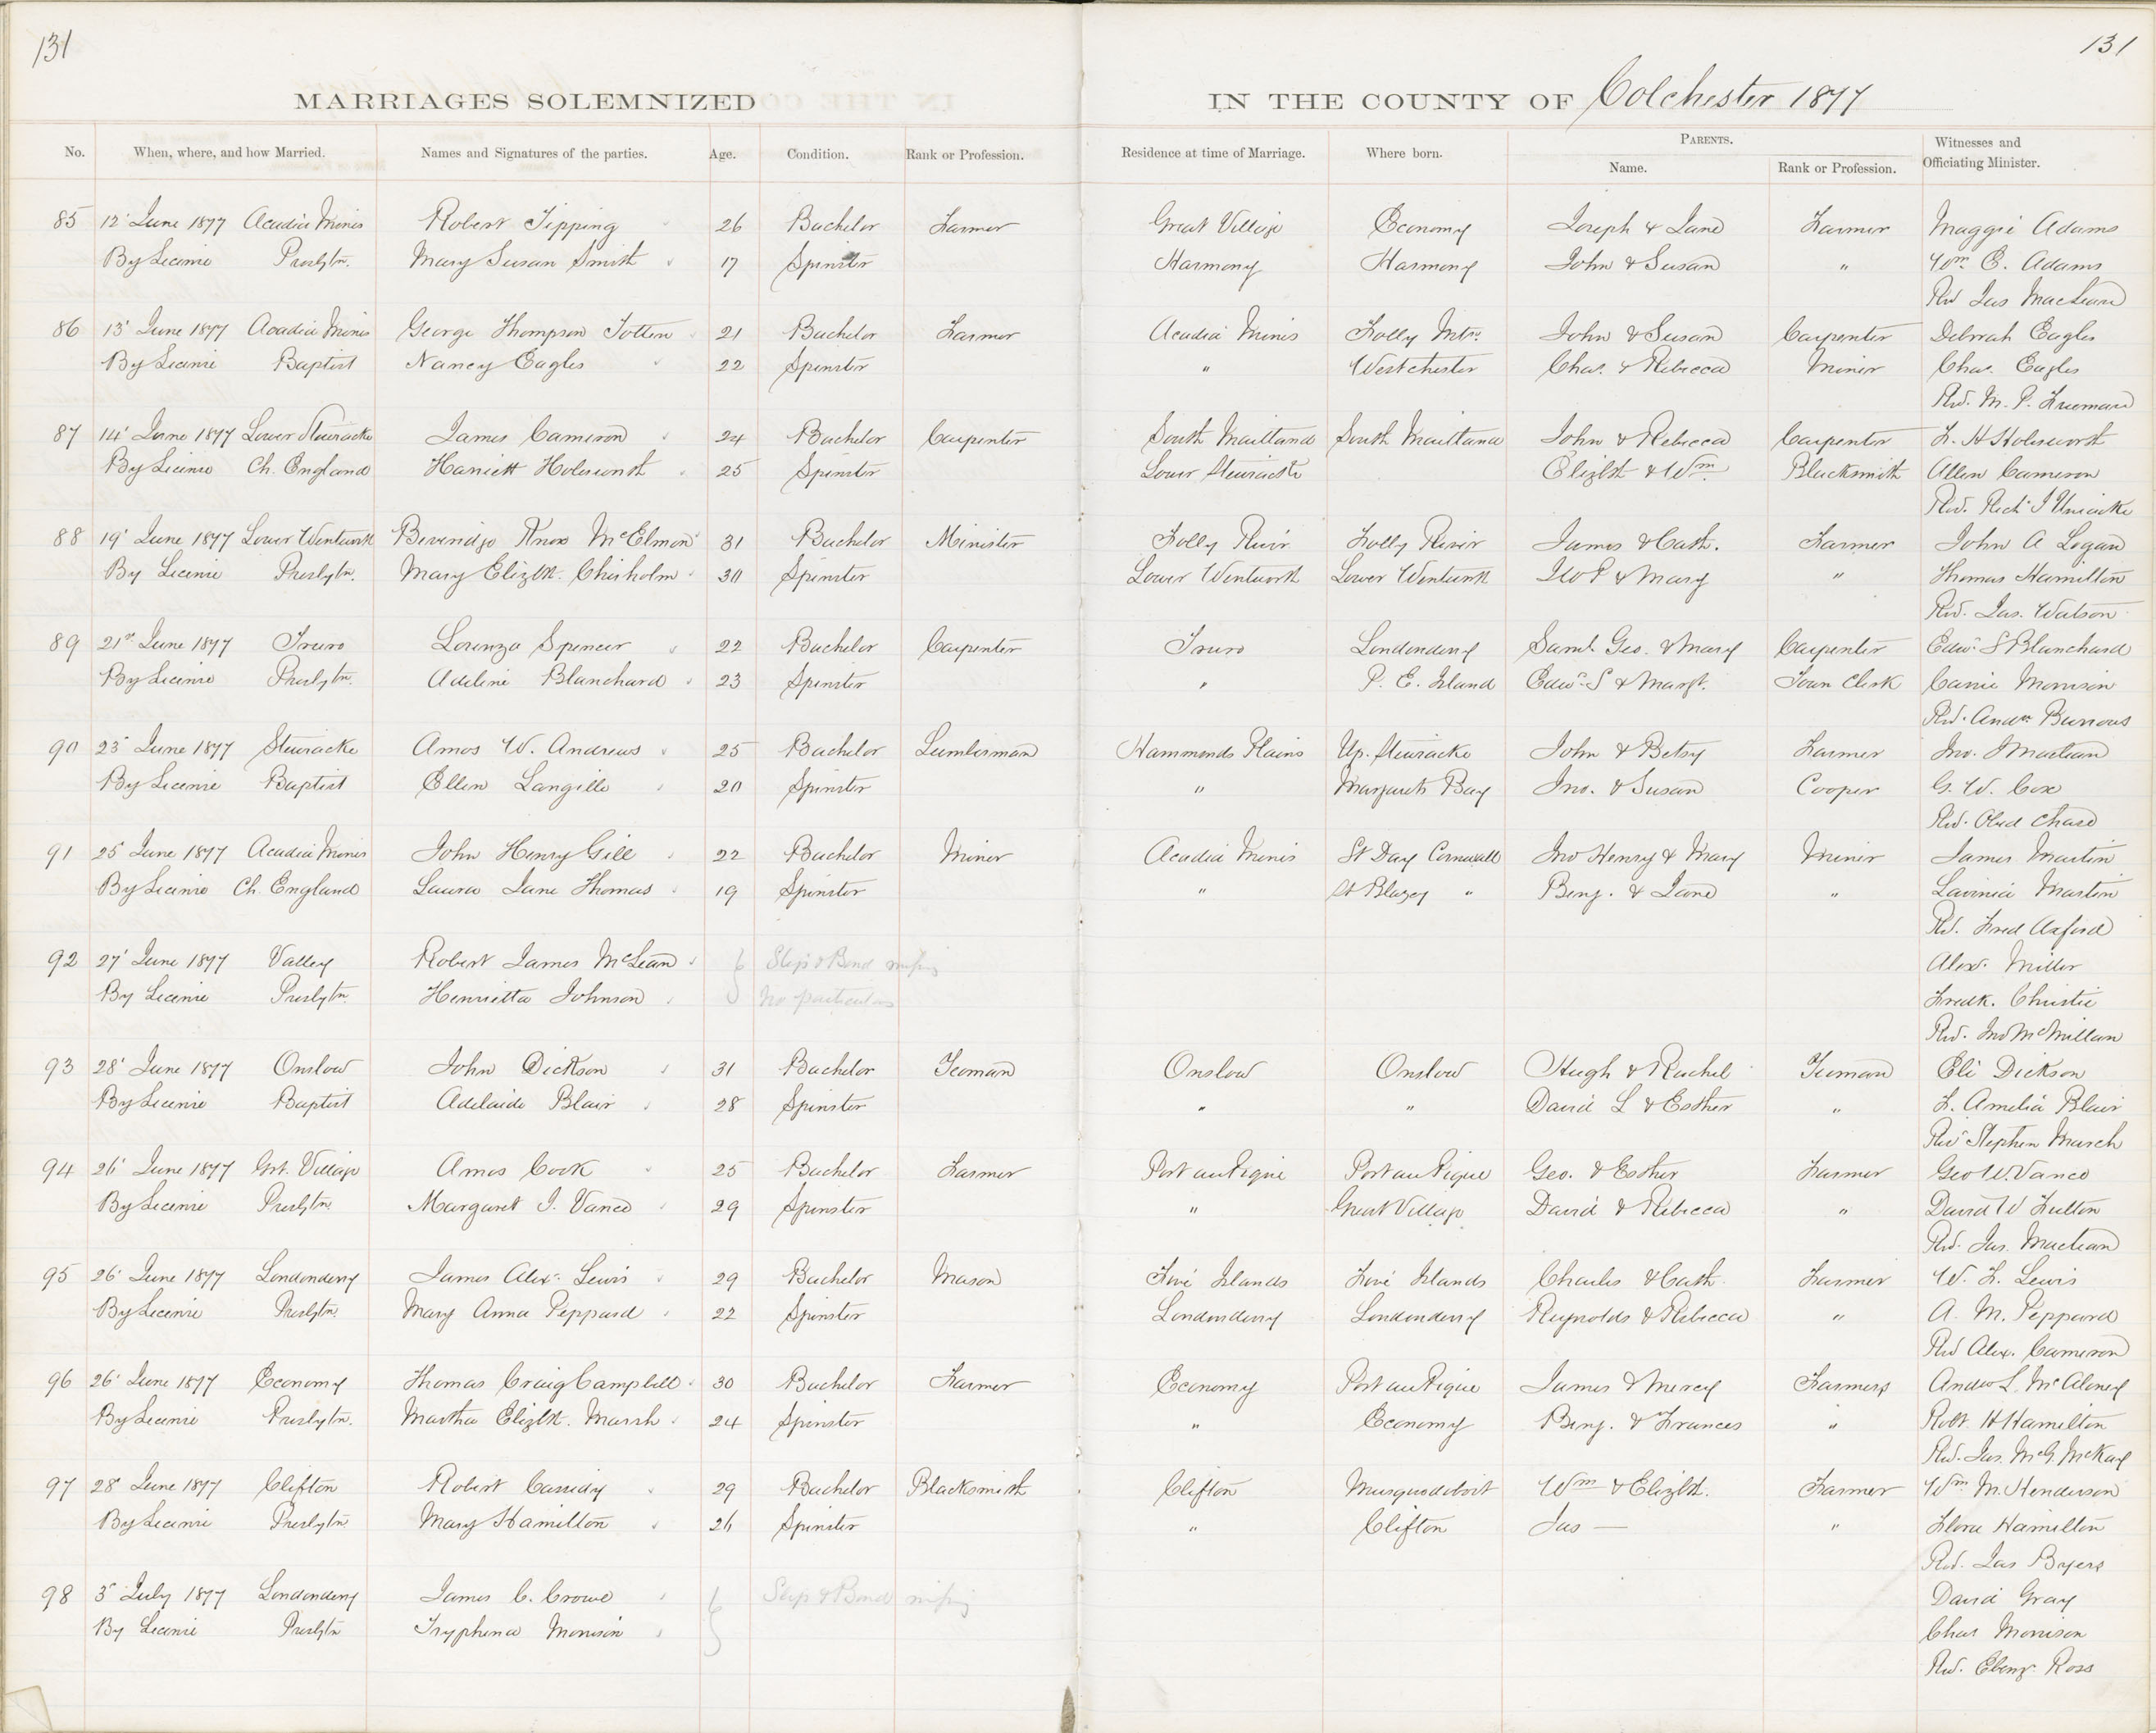 131
131
MARRIAGES SOLEMNIZED IN THE COUNTY OF Colchester 1877
No. When, where, and how Married. Names and Signatures of the parties. Age. Condition. Rank or Profession. Residence at time of Marriage. Where born. PARENTS. Name. Rank or Profession. Witnesses and Officiating Minister.
85 12' June 1877 Acadia Mines Robert Tipping 26 Bachelor Farmer Great Village Economy Joseph & Jane Farmer Maggie Adams
By License Presbytn. Mary Susan Smith 17 Spinster Harmony Harmony John & Susan " Wm. E. Adams
Rev Jas MacLean
86 13' June 1877 Acadia Mines George Thompson Totten 21 Bachelor Farmer Acadia Mines Folly Mtn. John & Susan Carpenter Deborah Eagles
By License Baptist Nancy Eagles 22 Spinster " Westchester Chas. & Rebecca Miner Chas. Eagles
Rev. M. P. Freeman
87 14' June 1877 Lower Stewiacke James Cameron 24 Bachelor Carpenter South Maitland South Maitland John & Rebecca Carpenter F. H Holesworth
By License Ch. England Harriett Holesworth 25 Spinster Lower Stewiacke Elizbth & Wm. Blacksmith Allen Cameron
Rev. Richd J Uniacke
88 19' June 1877 Lower Wentworth Beveridge Knox McElmon 31 Bachelor Minister Folly River Folly River James & Cath. Farmer John A Logan
By License Presbytn. Mary Elizbth. Chisholm 30 Spinster Lower Wentworth Lower Wentworth & Mary " Thomas Hamilton
Rev. Jas. Watson
89 21st June 1877 Truro Lorenzo Spencer 22 Bachelor Carpenter Truro Londonderry Saml. Geo. & Mary Carpenter Edwd. S Blanchard
By License Presbytn. Adeline Blanchard 23 Spinster " P. E. Island Edwd. S & Margt. Town Clerk Carrie Morrison
Rev. Andw Burrows
90 23' June 1877 Stewiacke Amos W. Andrews 25 Bachelor Lumberman Hammonds Plains Up. Stewiacke John & Betsy Farmer Jno. Maclean
By License Baptist Ellen Langille 20 Spinster " Margarets Bay Jno. & Susan Cooper G. W. Cox
Rev. Obed Chase
91 25' June 1877 Acadia Mines John Henry Gill 22 Bachelor Miner Acadia Mines St Day Cornwall Jno Henry & Mary Miner James Martin
By License Ch. England Laura Jane Thomas 19 Spinster " St Blazey " Benj. & Jane " Lavinia Martin
Rev. Fred Axford
92 27' June 1877 Valley Robert James McLean Slip & Bond missing Alexr. Miller
By License Presbytn. Henrietta Johnson No particulars Fredk. Christie
Rev. Jno McMillan
93 28' June 1877 Onslow John Dickson 31 Bachelor Yeoman Onslow Onslow Hugh & Rachel Yeoman Eli Dickson
By License Baptist Adelaide Blair 28 Spinster " " David L & Esther " F. Amelia Blair
Revd Stephen March
94 26' June 1877 Grt. Village Amos Cook 25 Bachelor Farmer Port au Pique Port au Pique Geo. & Esther Farmer Geo W. Vance
By License Presbytn. Margaret J. Vance 29 Spinster " Great Village David & Rebecca " David W Fulton
Rev. Jas. Maclean
95 26' June 1877 Londonderry James Alexr. Lewis 29 Bachelor Mason Five Islands Five Islands Charles & Cath. Farmer W. F. Lewis
By License Presbytn. Mary Anna Peppard 22 Spinster Londonderry Londonderry Reynolds & Rebecca " A. M. Peppard
Rev Alex. Cameron
96 26' June 1877 Economy Thomas Craig Campbell 30 Bachelor Farmer Economy Port au Pique James & Mercy Farmers Andw L. McAloney
By License Presbytn. Martha Elizbth. Marsh 24 Spinster " Economy Benj. & Frances " Robt. H Hamilton
Rev. Jas. McG. McKay
97 28' June 1877 Clifton Robert Cassidy 29 Bachelor Blacksmith Clifton Musquodoboit Wm & Elizbth. Farmer Wm. M. Henderson
By License Presbytn. Mary Hamilton 26 Spinster " Clifton Jas — " Flora Hamilton
Rev. Jas Byers
98 3' July 1877 Londonderry James C. Crowe Slip & Bond missing David Gray
By License Presbytn Tryphena Morrison Chas Morrison
Rev. Ebenr. Ross